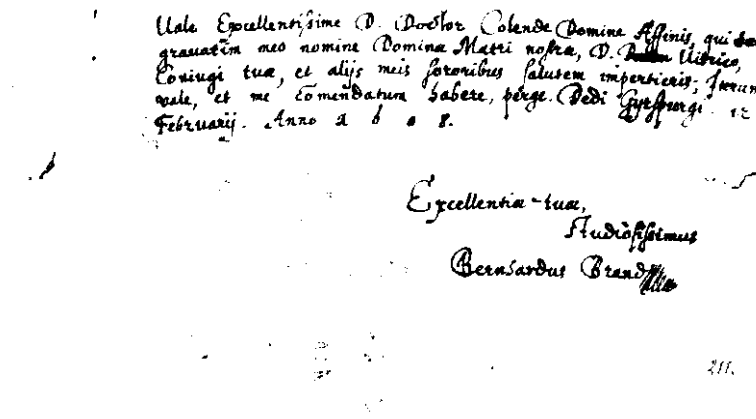 Vale Excellentissime D. Doctor Colende Domine Affinis, qui
gravatim meo nomine Dominæ Matri nostræ, D. Ulrico,
Coniugi tuæ, et alijs meis sororibus salutem impertieris; Iterum
vale, et me Comendatum habere, perge. Dedi 12
Februarij. Anno 1608.
Excellentiæ tuæ,
Studiosissimus
Bernhardus Brand
211.